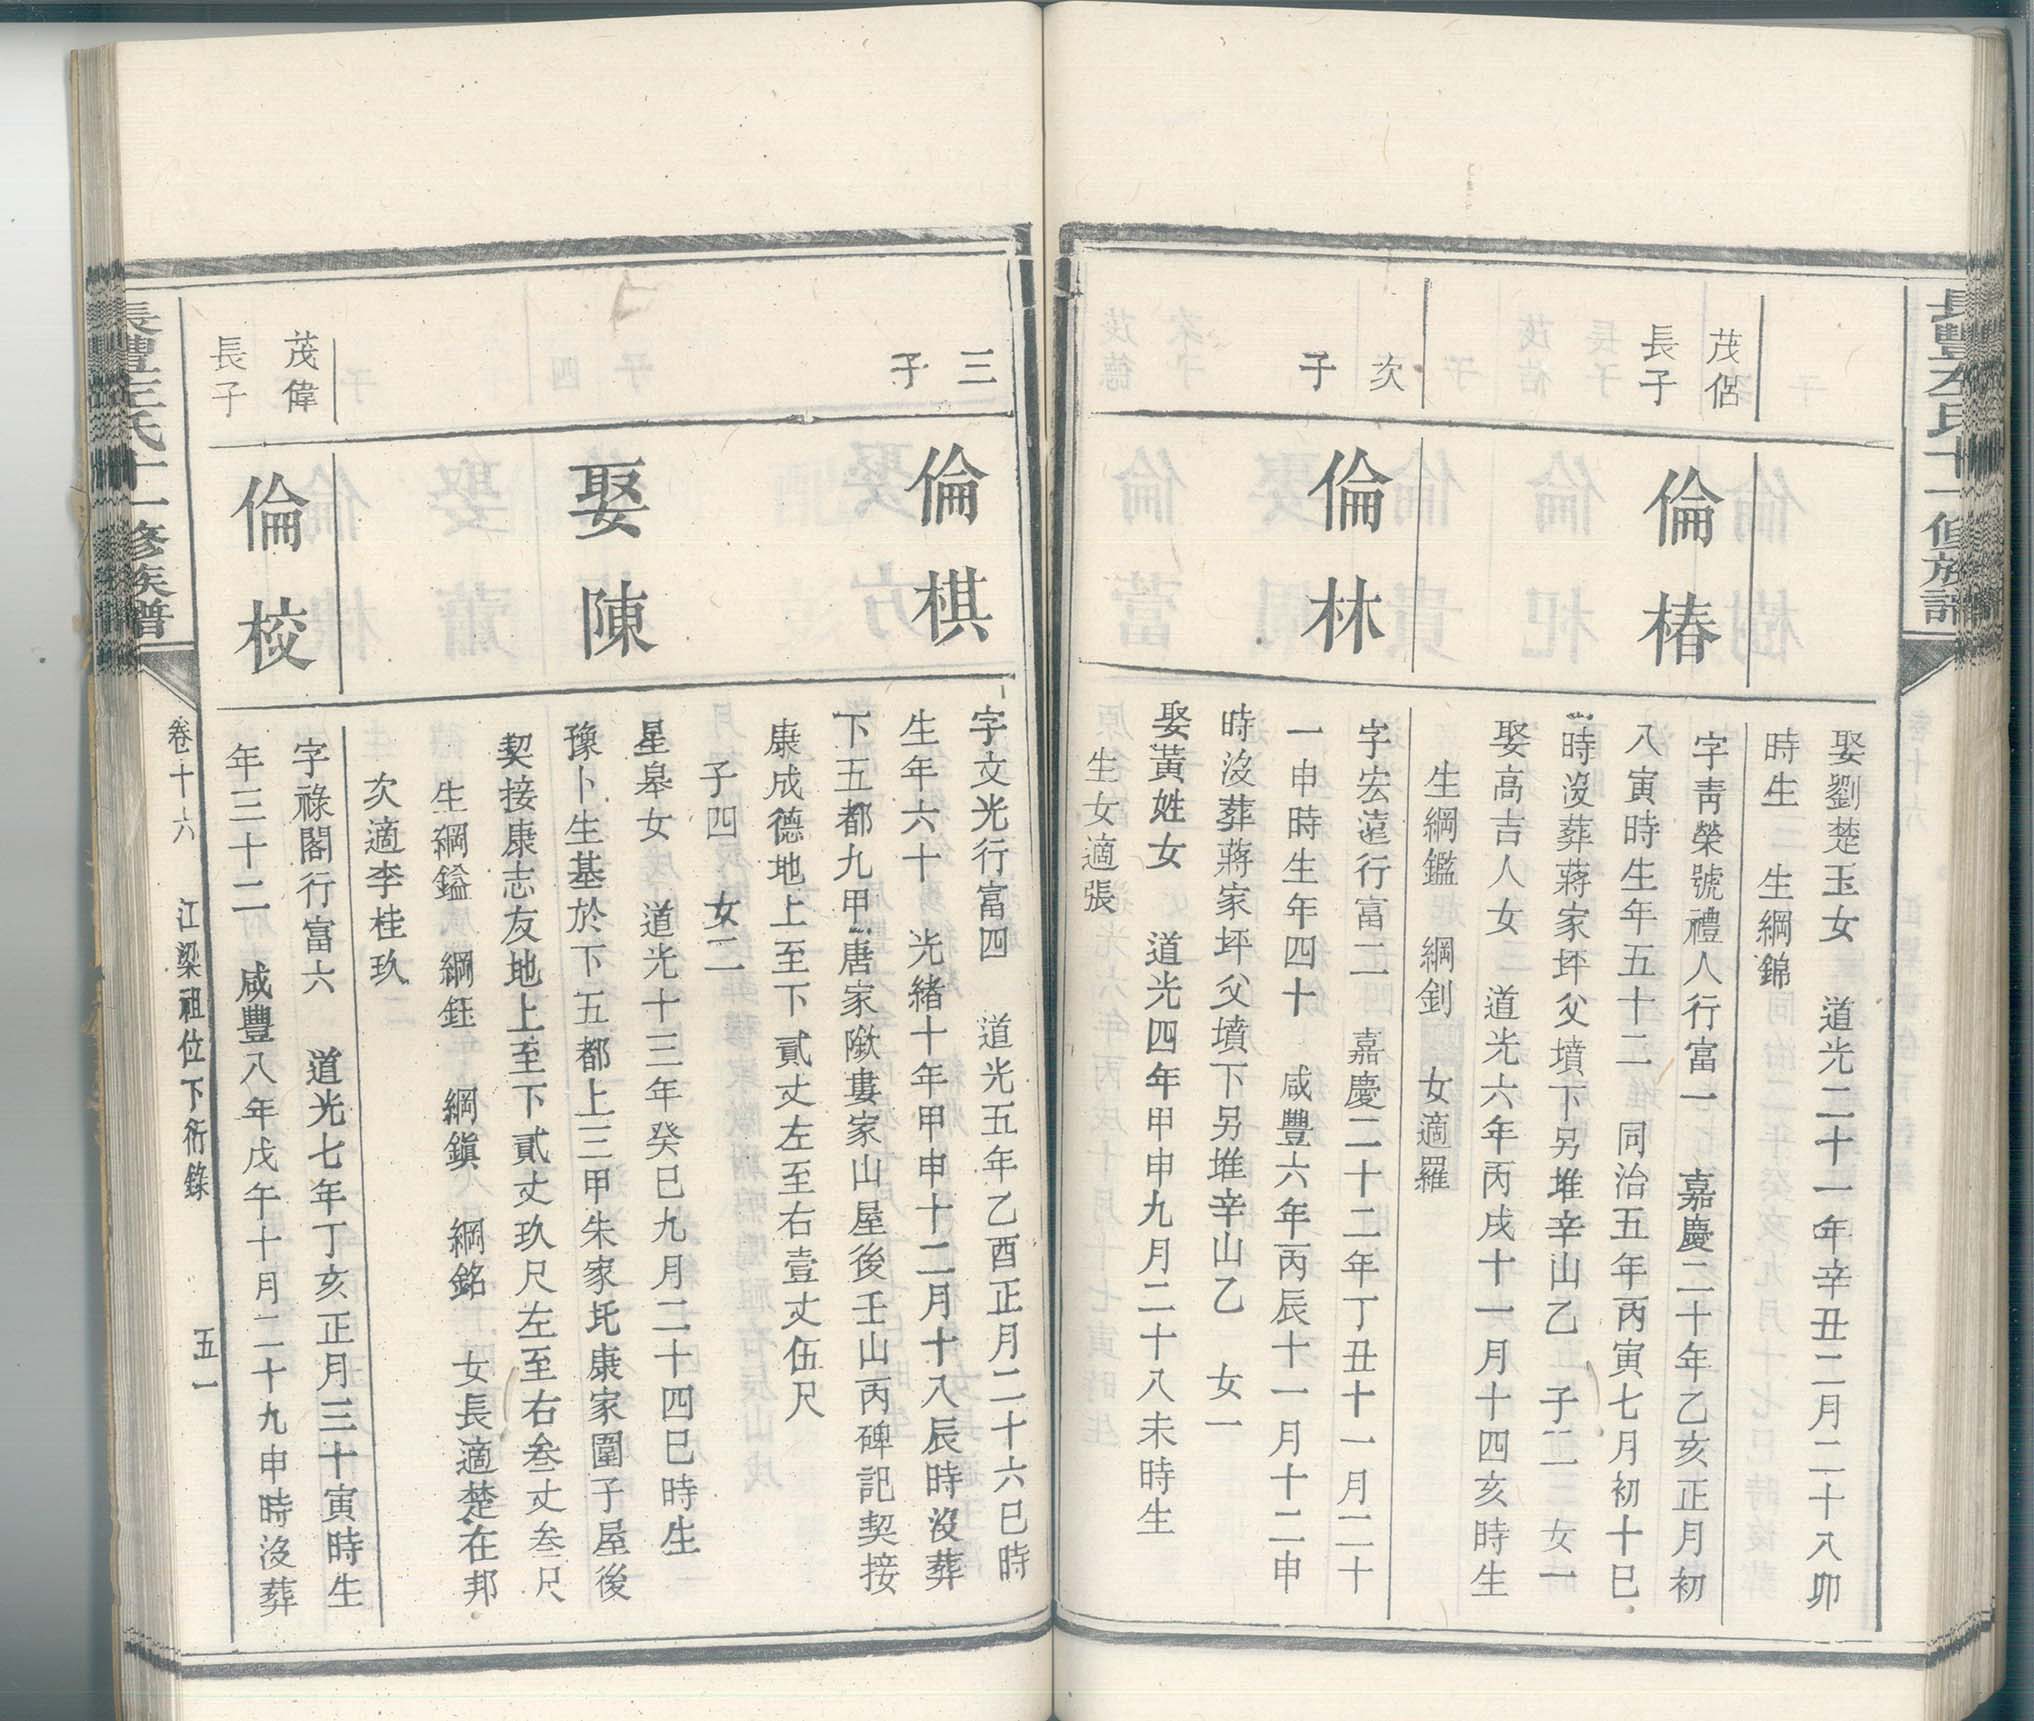 長豐左氏十一修族譜
娶劉楚玉女　道光二十一年辛丑二月二十八卯
時生　生綱錦
茂侶
長子
倫椿
字青榮號禮人行富一　嘉慶二十年乙亥正月初
八寅時生年五十二　同治五年丙寅七月初十巳
時沒葬蔣家坪父墳下另堆辛山乙　子二　女一
娶高吉人女　道光六年丙戌十一月十四亥時生
生綱鑑　綱釗　女適羅
次
子
倫林
字宏遠行富二　嘉慶二十二年丁丑十一月二十
一申時生年四十　咸豐六年丙辰十一月十二申
時沒葬蔣家坪父墳下另堆辛山乙　女一
娶黃姓女　道光四年甲申九月二十八未時生
生女適張
三
子
倫棋
字文光行富四　道光五年乙酉正月二十六巳時
生年六十　光緒十年甲申十二月十八辰時沒葬
下五都九甲唐家隞婁家山屋後壬山丙碑記契接
康成德地上至下貳丈左至右壹丈伍尺
子四　女二
娶陳
星皋女　道光十三年癸巳九月二十四巳時生
豫卜生基於下五都上三甲朱家坉康家圍子屋後
契接康志友地上至下貳丈玖尺左至右叁丈叁尺
生綱鎰　綱鈺　綱鎭　綱銘　女長適楚在邦
次適李桂玖
茂偉
長子
倫校
字祿閣行富六　道光七年丁亥正月三十寅時生
年三十二　咸豐八年戊午十月二十九申時沒葬
長豐左氏十一修族譜
卷十六　江梁祖位下衍錄　五一